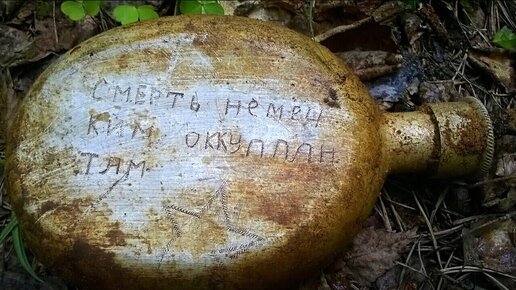 СМЕРТЬ НЕМЕЦ
КИМ ОККУППАН
ТАМ